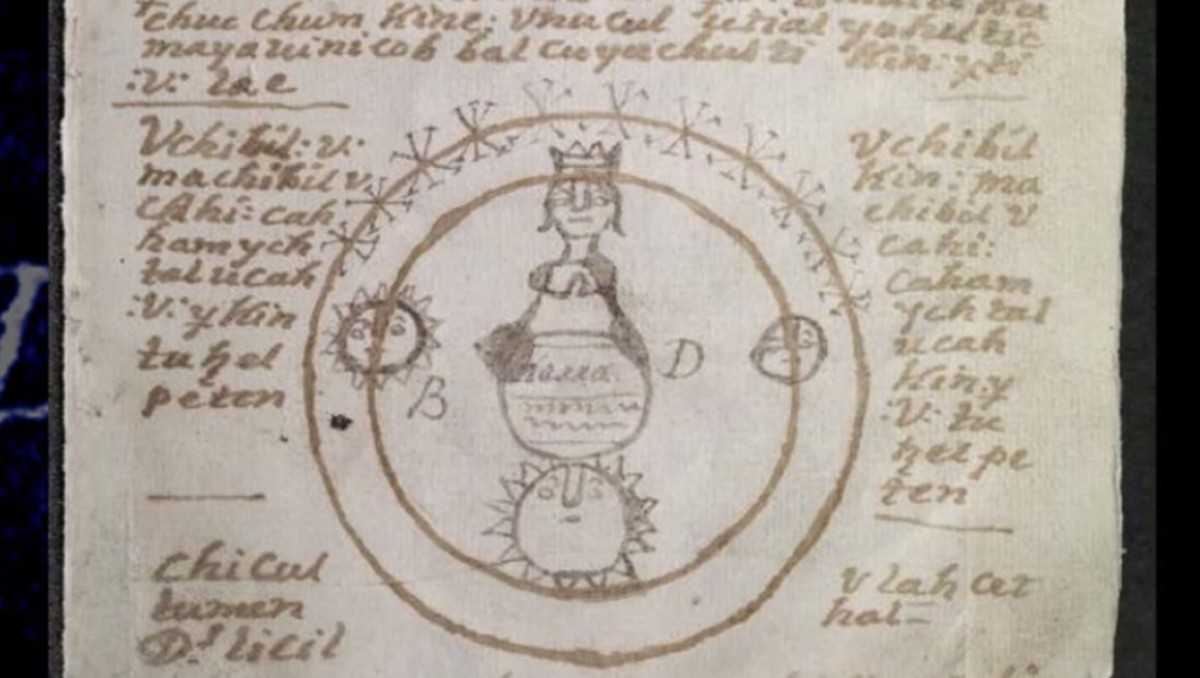 chuc chum kine: Vnucul
mayauinicob bal cuyuchul ti kin: y ti
:V: lae
Vchibil: v:
machibil v
cahi: cah
hamych
tal ucah
:V: y kin
tu hel
peten
B
D
Vchibil
kin: ma
chibil V
cahi:
caham
ych tal
ucah
kin y
:V: tu
hel pe
ten
chicul
tumen
Ds licil
V lah cet
hal